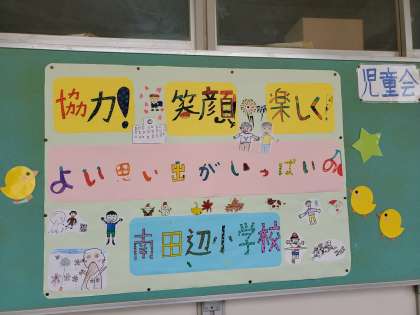 協力! 笑顔 楽しく
よい思い出がいっぱいの
南田辺小学校
児童会